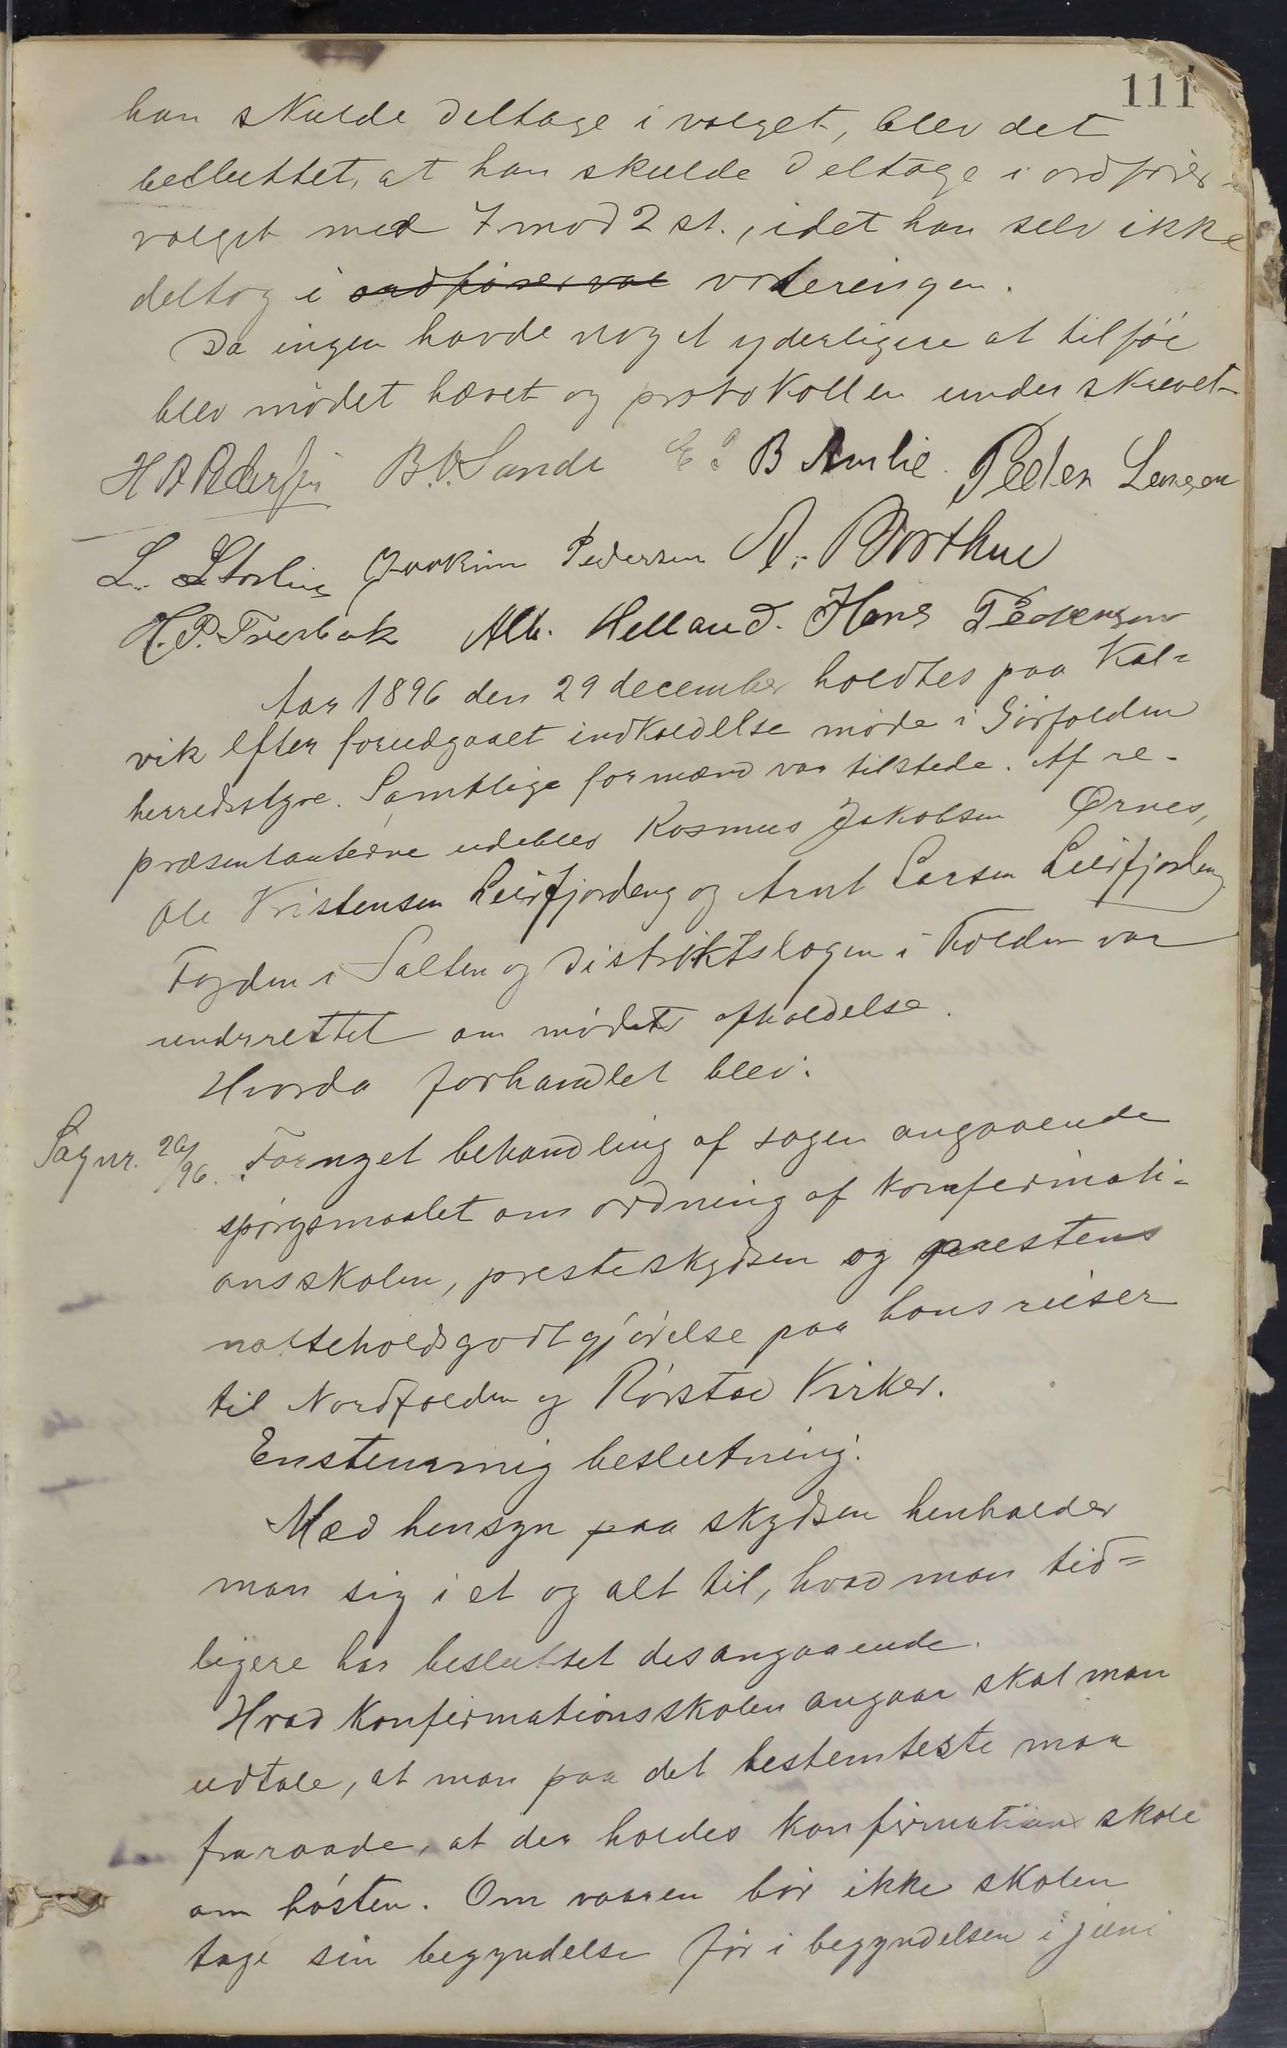 111
han skulde deltage i valget, blev det
besluttet, at han skulde deltage i ordfører-
valget med 7 mod 2 st., idet han selv ikke
deltog i ordførerval voteringen.
Da ingen havde noget yderligere at tilføie
blev mødet hævet og protokollen underskrevet.
H B Pedersen B.O. Sande E S B Amlie. Peder Larsen
L. Storlien Joakim Pedersen A. Borthue
H.P. Trærbak Alb. Helland. Hans Pedersen
Aar 1896 den 29 december holdtes paa Kal-
vik efter forudgaaet indkaldelse møde i Sørfolden
herredsstyre. Samtlige formænd var tilstede. Af re-
præsentanterne udeblev Rasmus Jakobsen Ørnes,
Ole Kristensen Leirfjorden og Arnt Larsen Leirfjorden
Fogden i Salten og Distriktslægen i Folden var
underrettet om mødets afholdelse.
Hvorda forhandlet blev:
Sagnr. 26/96. Fornyet behandling af sagen angaaende
spørgsmaalet om ordning af konfirmati-
onsskolen, presteskydsen og prestens
natteholdsgodtgjørelse paa hans reiser
til Nordfolden og Rørstad Kirker.
Enstemmig beslutning:
Med hensyn paa skydsen henholder
man sig i et og alt til, hvad man tid-
ligere har besluttet desangaaende.
Hvad konfirmationsskolen angaar skal man
udtale, at man paa det bestemteste maa
fraraade, at der holdes konfirmationsskole
om høsten. Om vaaren bør ikke skolen
tage sin begyndelse før i begyndelsen i juni